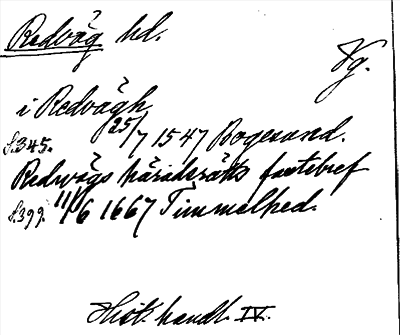 Redväg hd.
Vg.
i Redvägh
s. 345. 25/7 1547 Bogesund.
Redvägs häradsrätts fastebref
s. 399. 11/6 1667 Timmelhed.
Hist. handl. IV.